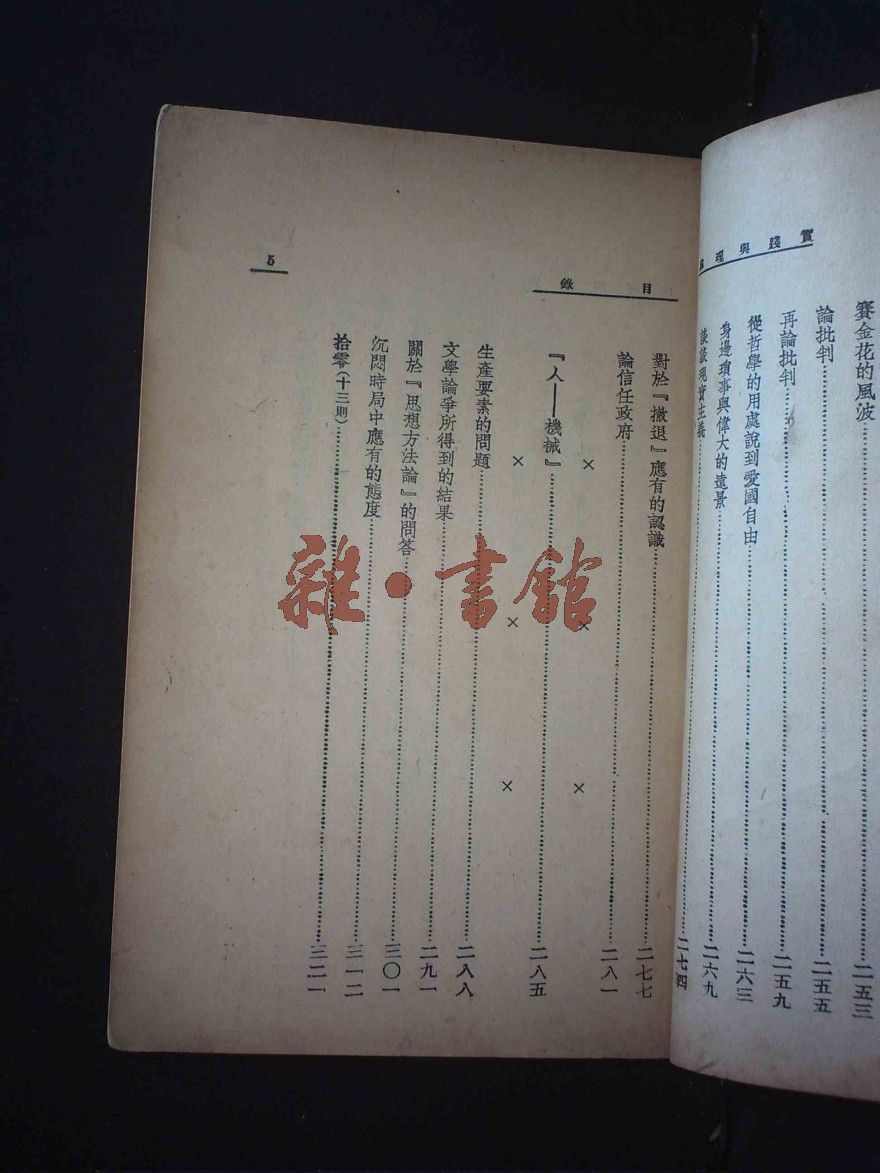 實踐與理
賽金花的風波……二五三
論批判……二五五
再論批判……二五九
從哲學的用處說到愛國自由……二六三
身邊瑣事與偉大的遠景……二六九
談談現實主義……二七四
目錄
對於『撤退』應有的認識……二七七
論信任政府……二八一
× × ×
『人——機械』……二八五
× × ×
生產要素的問題……二八八
文學論爭所得到的結果……二九一
關於『思想方法論』的問答……三〇一
沉悶時局中應有的態度……三一二
拾零(十三則)……三二一
5
雜·書館